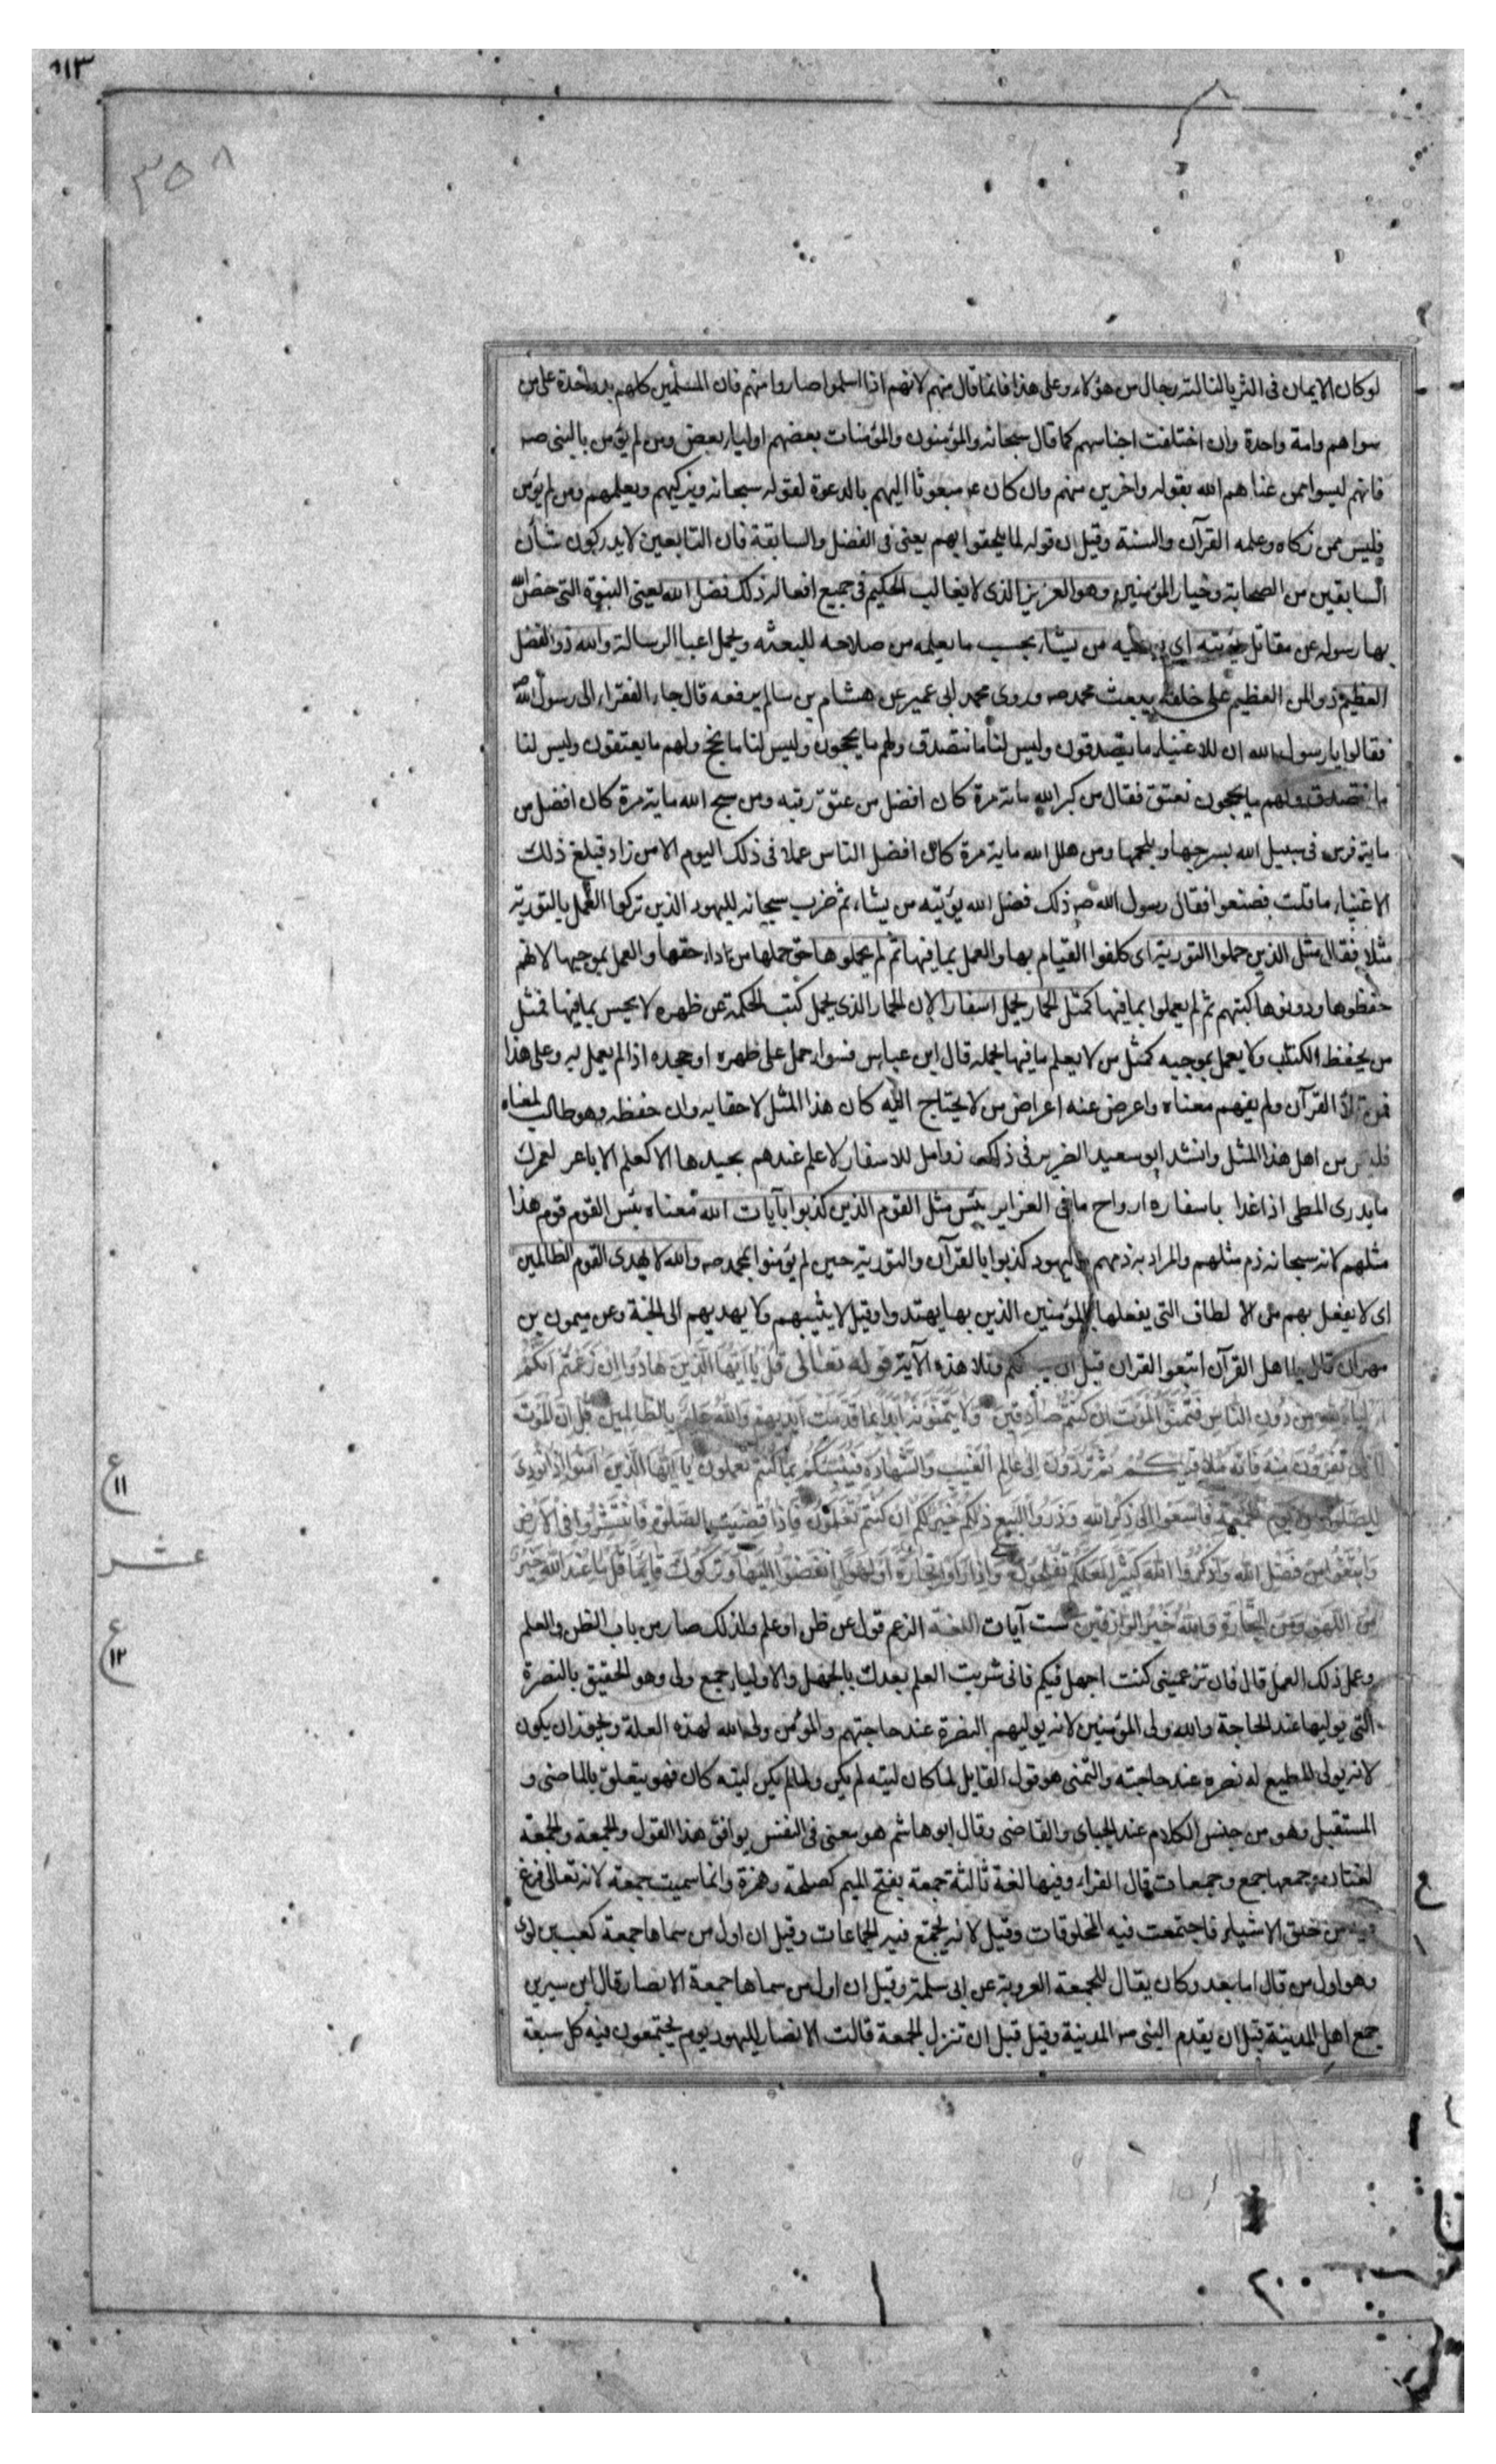 ١١٣
٣٥٨
لو كان الايمان فى الثريا لنالته رجال من هؤلاء وعلى هذا فانما قال منهم لانهم اذا اسلموا صاروا منهم فان المسلمين كلهم يد واحدة على من
سواهم وامة واحدة وان اختلفت اجناسهم كما قال سبحانه والمؤمنون والمؤمنات بعضهم اولياء بعض ومن لم يؤمن بالنبى صه
فانهم ليسوا ممن عناهم الله بقوله واخرين منهم وان كان ع مبعوثا اليهم بالدعوة لقوله سبحانه ويزكيهم ويعلمهم ومن لم يؤمن
فليس ممن زكاه وعلمه القرآن والسنة وقيل ان قوله لما يلحقوا بهم يعنى فى الفضل والسابقة فان التابعين لا يدركون شأن
السابقين من الصحابة وخيار المؤمنين وهو العزيز الذى لا يغالب الحكيم فى جميع افعاله ذلك فضل الله يعنى النبوة التى خص الله
بها رسوله عن مقاتل يؤتيه اى يعطيه من يشاء بحسب ما يعلمه من صلاحه للبعثه وتحمل اعباء الرسالة والله ذو الفضل
العظيم ذو المن العظيم على خلقه ببعث محمد صه وروى محمد ابى عمير عن هشام بن سالم يرفعه قال جاء الفقراء الى رسول الله ص
فقالوا يا رسول الله ان للاغنياء ما يتصدقون وليس لنا ما نتصدق ولهم ما يحجون وليس لنا ما نحج ولهم ما يعتقون وليس لنا
ما نتصدق ولهم ما يحجون نعتق فقال من كبر الله ماية مرة كان افضل من عتق رقبه ومن سبح الله ماية مرة كان افضل من
ماية فرس فى سبيل الله يسرجها ويلجمها ومن هلل الله ماية مرة كان افضل الناس عملا فى ذلك اليوم الا من زاد فبلغ ذلك
الاغنياء ما قلت فصنعوا فقال رسول الله صه ذلك فضل الله يؤتيه من يشاء ثم ضرب سبحانه لليهود الذين تركوا العمل بالتورية
مثلا فقال مثل الذين حملوا التورية اى كلفوا القيام بها والعمل بما فيها ثم لم يحملوها حق حملها من اداء حقها والعمل بموجبها لانهم
حفظوها ودونوها كتبهم ثم لم يعملوا بما فيها كمثل الحمار يحمل اسفارا لان الحمار الذى يحمل كتب الحكمة عن ظهره لا يحس بما فيها فمثل
من يحفظ الكتاب ولا يعمل بموجبه كمثل من لا يعلم ما فيها يحمله قال ابن عباس فسواء حمل على ظهره او جحده اذا لم يعمل به وعلى هذا
فمن تلا القرآن ولم يفهم معناه واعرض عنه اعراض من لا يحتاج اليه كان هذا المثل لاحقا به وان حفظه وهو طالب لمعناه
فليس من اهل هذا المثل وانشد ابو سعيد الضرير فى ذلك زوامل للاسفار لا علم عندهم بجيدها الا كعلم الاباعر لعمرك
ما يدرى المطى اذا غدا باسفاره ارواح ما فى الغراير بئس مثل القوم الذين كذبوا بآيات الله معناه بئس القوم قوم هذا
مثلهم لانه سبحانه ذم مثلهم والمراد به ذمهم واليهود كذبوا بالقرآن والتورية حين لم يؤمنوا بمحمد صه والله لا يهدى القوم الظالمين
اى لا يفعل بهم من الالطاف التى يفعلها بالمؤمنين الذين بها يهتدوا وقيل لا يثيبهم ولا يهديهم الى الجنة وعن ميمون بن
مهران قال يا اهل القرآن اتبعوا القران قبل ان يتبعكم وتلا هذه الآية قوله تعالى قُلْ يَا أَيُّهَا الَّذِينَ هَادُوا إِنْ زَعَمْتُمْ أَنَّكُمْ
أَوْلِيَاءُ لِلَّهِ مِنْ دُونِ النَّاسِ فَتَمَنَّوُا الْمَوْتَ إِنْ كُنْتُمْ صَادِقِينَ وَلَا يَتَمَنَّوْنَهُ أَبَدًا بِمَا قَدَّمَتْ أَيْدِيهِمْ وَاللَّهُ عَلِيمٌ بِالظَّالِمِينَ قُلْ إِنَّ الْمَوْتَ
الَّذِى تَفِرُّونَ مِنْهُ فَإِنَّهُ مُلَاقِيكُمْ ثُمَّ تُرَدُّونَ إِلَى عَالِمِ الْغَيْبِ وَالشَّهَادَةِ فَيُنَبِّئُكُمْ بِمَا كُنْتُمْ تَعْمَلُونَ يَا أَيُّهَا الَّذِينَ آمَنُوا إِذَا نُودِيَ
لِلصَّلَوةِ مِنْ يَوْمِ الْجُمُعَةِ فَاسْعَوْا إِلَى ذِكْرِ اللَّهِ وَذَرُوا الْبَيْعَ ذَلِكُمْ خَيْرٌ لَكُمْ إِنْ كُنْتُمْ تَعْلَمُونَ فَإِذَا قُضِيَتِ الصَّلَوةُ فَانْتَشِرُوا فِى الْأَرْضِ
وَابْتَغُوا مِنْ فَضْلِ اللَّهِ وَاذْكُرُوا اللَّهَ كَثِيرًا لَعَلَّكُمْ تُفْلِحُونَ وَإِذَا رَأَوْا تِجَارَةً أَوْ لَهْوًا انْفَضُّوا إِلَيْهَا وَتَرَكُوكَ قَائِمًا قُلْ مَا عِنْدَ اللَّهِ خَيْرٌ
مِنَ اللَّهْوِ وَمِنَ التِّجَارَةِ وَاللَّهُ خَيْرُ الرَّازِقِينَ ست آيات اللغة الزعم قول عن ظن او علم ولذلك صار من باب الظن والعلم
وعمل ذلك العمل قال فان تزعمينى كنت اجهل فيكم فانى شريت العلم بعدك بالجهل والاولياء جمع ولى وهو الحقيق بالنصرة
التى يوليها عند الحاجة والله ولى المؤمنين لانه يوليهم النصرة عند حاجتهم والمؤمن ولى الله لهذه العلة ويجوز ان يكون
لانه يولى المطيع له نصره عند حاجته والتمنى هو قول القايل لما كان ليته لم يكن ولما لم يكن ليته كان فهو يتعلق بالماضى و
المستقبل وهو من جنس الكلام عند الجباى والقاضى وقال ابو هاشم هو معنى فى النفس يوافق هذا القول والجمعة والجمعة
لغتان وجمعها جمع وجمعات قال الفراء وفيها لغة ثالثة جمعة بفتح الميم كضحكة وهمزة وانما سميت جمعة لانه تعالى فرغ
فيه من خلق الاشياء فاجتمعت فيه المخلوقات وقيل لانه تجتمع فيه الجماعات وقيل ان اول من سماها جمعة كعب بن لوى
وهو اول من قال اما بعد وكان يقال للجمعة العروبة عن ابى سلمة وقيل ان اول من سماها جمعة الانصار قال ابن سيرين
جمع اهل المدينة قبل ان يقدم النبى صه المدينة وقيل قبل ان تنزل الجمعة قالت الانصار لليهود يوم يجتمعون فيه كل سبعة
ع
١١
عشر
ع
١٢
٢٠٠